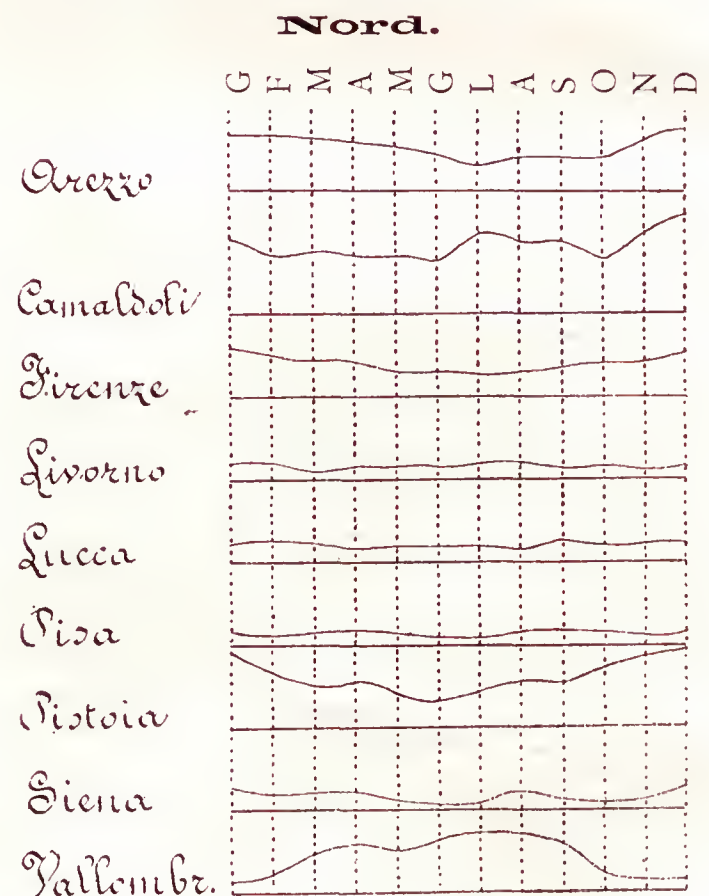 Nord.
G F M A M G L A S O N D
Arezzo
Camaldoli
Firenze
Livorno
Lucca
Pisa
Pistoia
Siena
Vallombr.